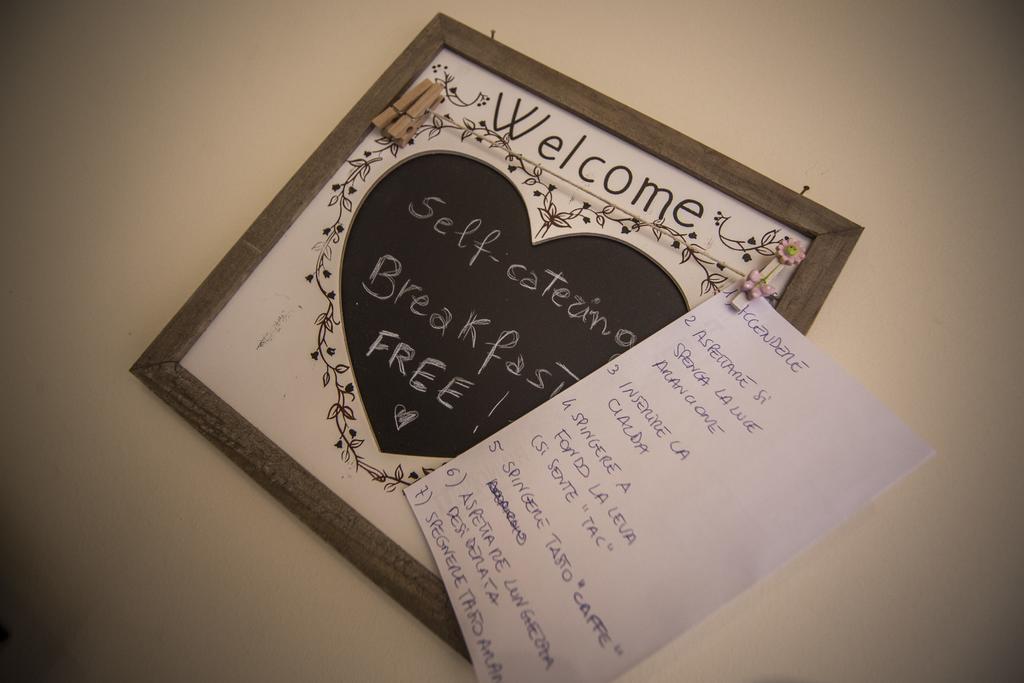 Welcome
Self-catering
Breakfast
FREE !
1 ACCENDERE
2 ASPETTARE SI
SPENGA LA LUCE
ARANCIONE
3 INSERIRE LA
CIALDA
4 SPINGERE A
FONDO LA LEVA
(SI SENTE "TAC"
5 SPINGERE TASTO "CAFFE"
6) ASPETTARE LUNGHEZZA
DESIDERATA
7) SPEGNERE TASTO ARAN